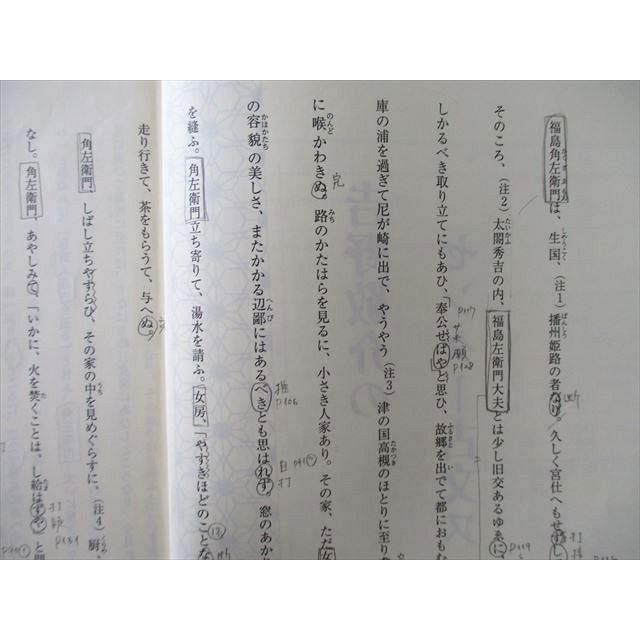 福島角左衛門は、生国、(注1)播州姫路の者なり。久しく宮仕へもせずし
そのころ、(注2)太閤秀吉の内、福島左衛門大夫とは少し旧交あるゆゑに
しかるべき取り立てにもあひ、奉公せばやと思ひ、故郷を出でて都におもむ
庫の浦を過ぎて尼が崎に出で、やうやう(注3)津の国高槻のほとりに至り
に喉かわきぬ。路のかたはらを見るに、小さき人家あり。その家、ただ女
の容貌の美しさ、またかかる辺鄙にはあるべきとも思はれず。窓のあか
を縫ふ。角左衛門立ち寄りて、湯水を請ふ。女房、「やすきほどのことな
走り行きて、茶をもらうて、与へぬ。
角左衛門、しばし立ちやすらひ、その家の中を見めぐらすに、(注4)厨
なし。角左衛門、あやしみて、「いかに、火を焚くことは、し給はずや」と